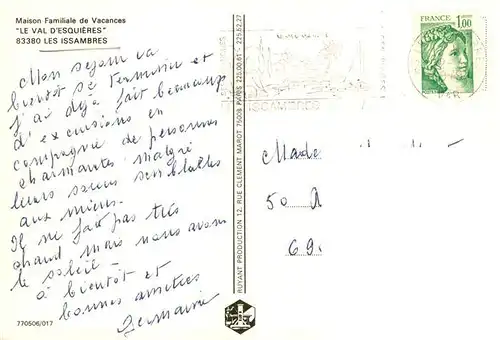 Maison Familiale de Vacances
"LE VAL D'ESQUIÈRES"
83380 LES ISSAMBRES
Mon sejour va
bientôt se terminer et
j'ai déjà fait beaucoup
d'excursions en
compagnie de personnes
charmantes malgré
leurs soucis semblables
aux miens.
Il ne fait pas très
chaud mais nous avons
le soleil -
à bientôt et
bonnes amitiées
Germaine
770506/017
RUYANT PRODUCTION 12, RUE CLEMENT MAROT 75008 PARIS 225.00.61 - 225.52.27
ISSAMBRES
FRANCE
1,00
Made
50 A
69.